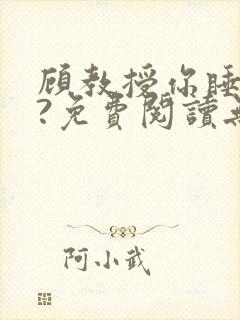 顾教授你睡
?免費閱讀
阿小武